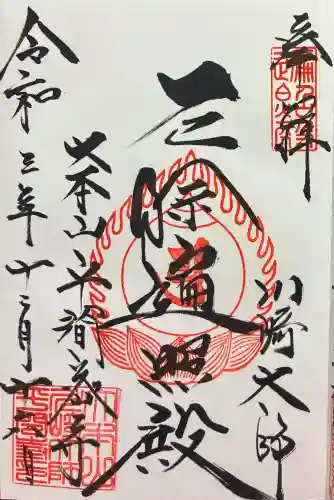 奉拝
川崎大師
遍照殿
大本山平間寺
令和三年十二月十六日